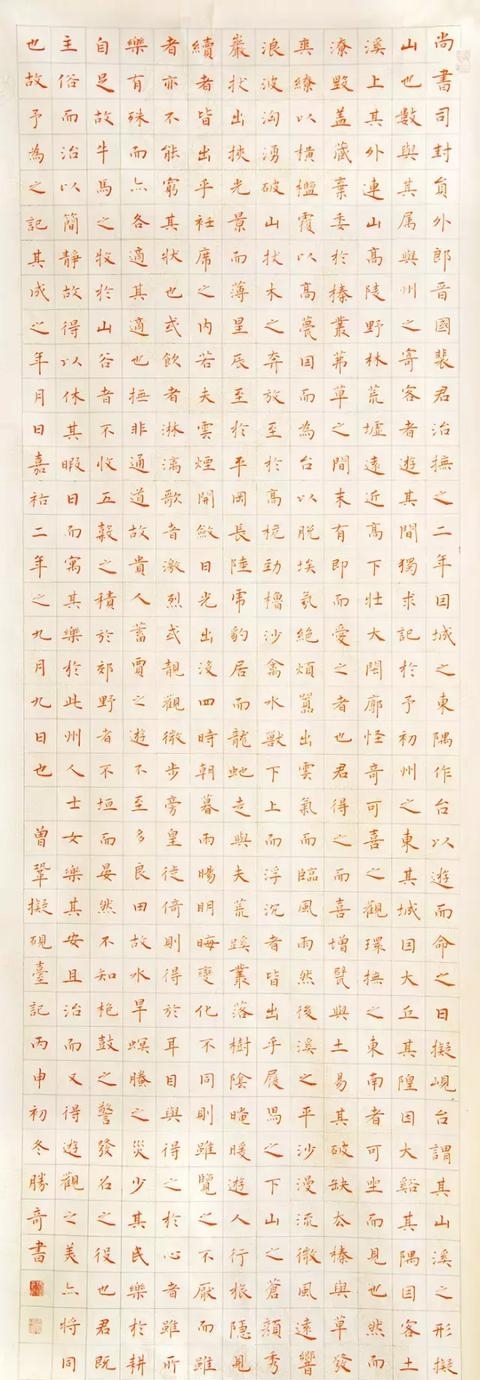 尚書司封員外郎晉國裴君治撫之二年因城之東隅作台以遊而命之曰擬峴台謂其山溪之形擬
山也數與其属與州之寄客者遊其間獨求記於予初州之東其城因大丘其隍因大谿其隅因客土
溪上其外連山高陵野林荒墟遠近高下壯大閎廓怪奇可喜之觀環撫之東南者可坐而見也然而
潦毀蓋藏棄委於榛叢茀草之間未有即而愛之者也君得之而喜增甓與土易其破缺去榛與草發
爽繚以橫檻覆以高甍因而為台以脱埃氛絕煩囂出雲氣而臨風雨然後溪之平沙漫流微風遠響
浪波洶湧破山拔木之奔放至於高桅勁櫓沙禽水獸下上而浮沉者皆出乎履舄之下山之蒼顏秀
巖狀出挾光景而薄星辰至於平岡長陸虎豹居而龍虵走與夫荒蹊叢落樹陰晻曖遊人行旅隱見
續者皆出乎衽席之内若夫雲煙開斂日光出没四時朝暮雨暘明晦變化不同則雖覽之不厭而雖
者亦不能窮其狀也或飲者淋漓歌者激烈或靚觀微步旁皇徙倚則得於耳目與得之於心者雖所
樂有殊而亦各適其適也撫非通道故貴人蓄賈之遊不至多良田故水旱螟螣之災少其民樂於耕
自足故牛馬之牧於山谷者不收五穀之積於郊野者不垣而晏然不知枹鼓之警發召之役也君既
主俗而治以簡靜故得以休其暇日而寓其樂於此州人士女樂其安且治而又得遊觀之美亦將同
也故予為之記其成之年月日嘉祐二年之九月九日也 曾鞏擬硯臺記丙申初冬勝奇書